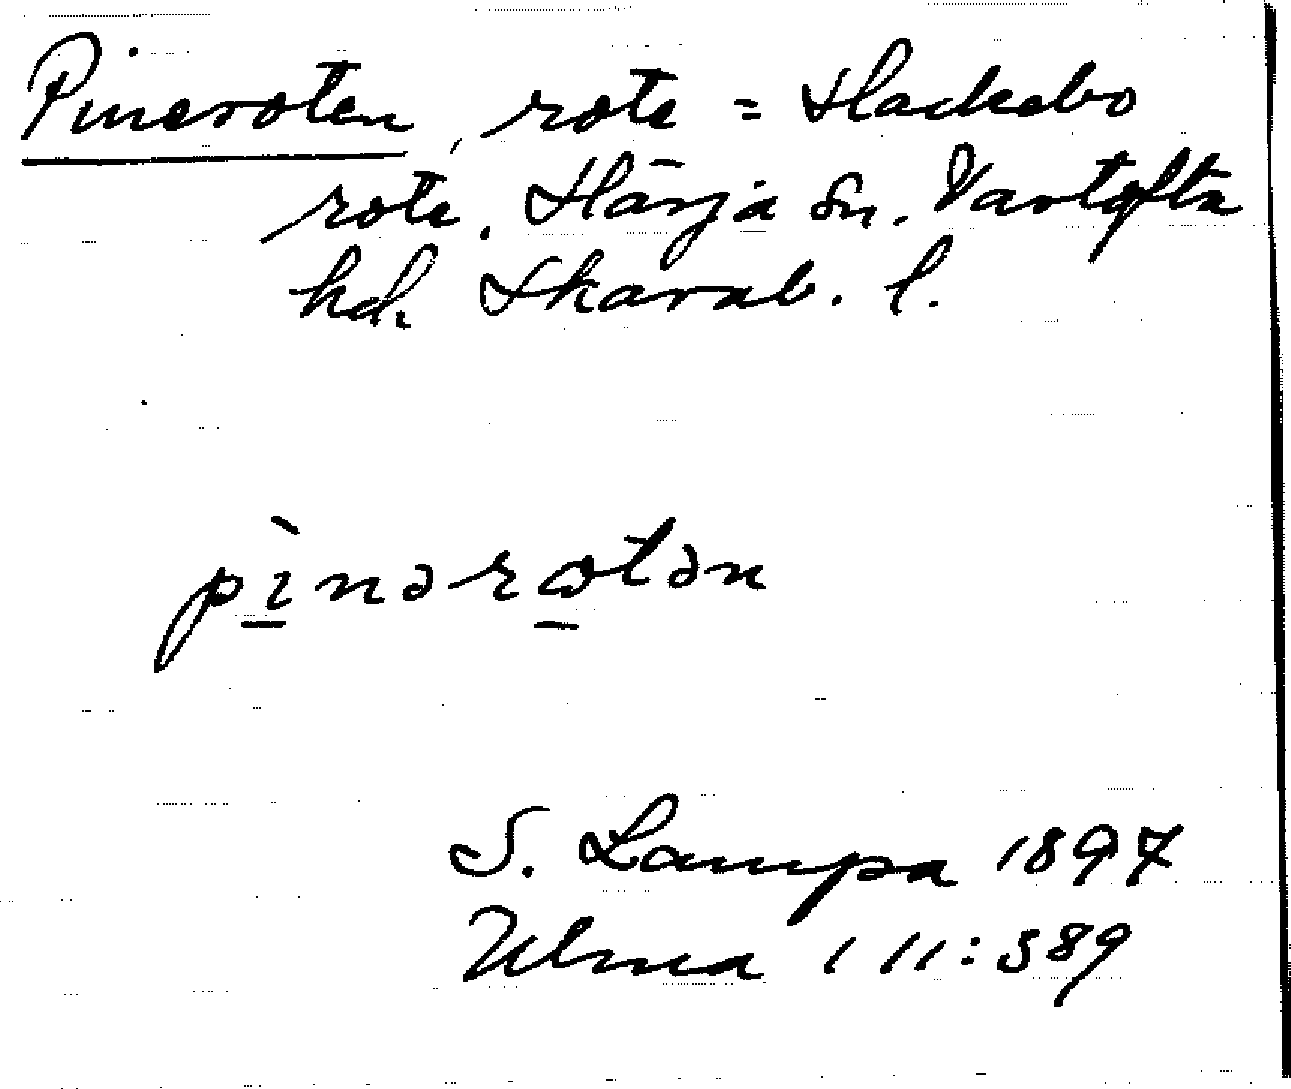 Pineroten, rote = Hackebo
rote. Härja sn. Vartofta
hd. Skarab. l.
pìnərωtən
S. Lampa 1897
Ulma 111:589